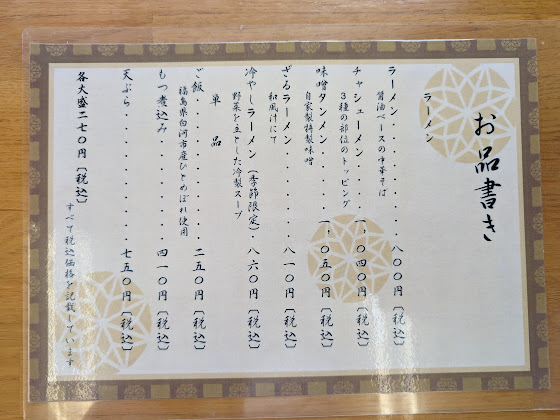 お品書き
ラーメン
ラーメン・・・・・・・・八〇〇円〔税込〕
醤油ベースの中華そば
チャシューメン・・・・一、〇四〇円〔税込〕
3種の部位のトッピング
味噌タンメン・・・・・一、〇五〇円〔税込〕
自家製特製味噌
ざるラーメン・・・・・・八一〇円〔税込〕
和風汁にて
冷やしラーメン(季節限定)八六〇円〔税込〕
野菜を主とした冷製スープ
単品
ご飯・・・・・・・・・・二五〇円〔税込〕
福島県白河市産ひとめぼれ使用
もつ煮込み・・・・・・・四一〇円〔税込〕
天ぷら・・・・・・・・・七五〇円〔税込〕
各大盛二七〇円〔税込〕
すべて税込価格を記載しています